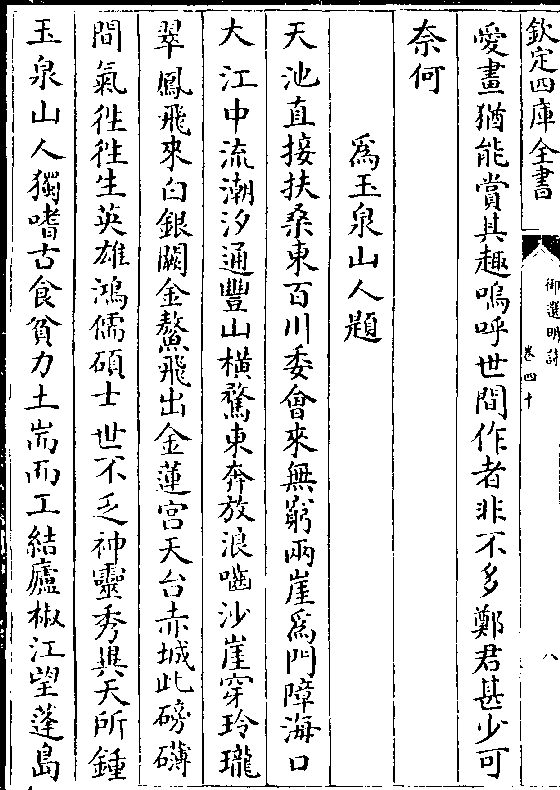 欽定四庫全書
御選明詩
卷四十
八
愛畫猶能賞其趣嗚呼世間作者非不多鄭君甚少可
奈何
爲玉泉山人題
天池直接扶桑東百川委會來無窮兩崖爲門障海口
大江中流潮汐通豐山橫騖東奔放浪嚙沙崖穿玲瓏
翠鳳飛來白銀闕金鰲飛出金蓮宮天台赤城此磅礴
間氣徃徃生英雄鴻儒碩士世不乏神靈秀異天所鍾
玉泉山人獨嗜古食貧力土耑而工結廬椒江望蓬島